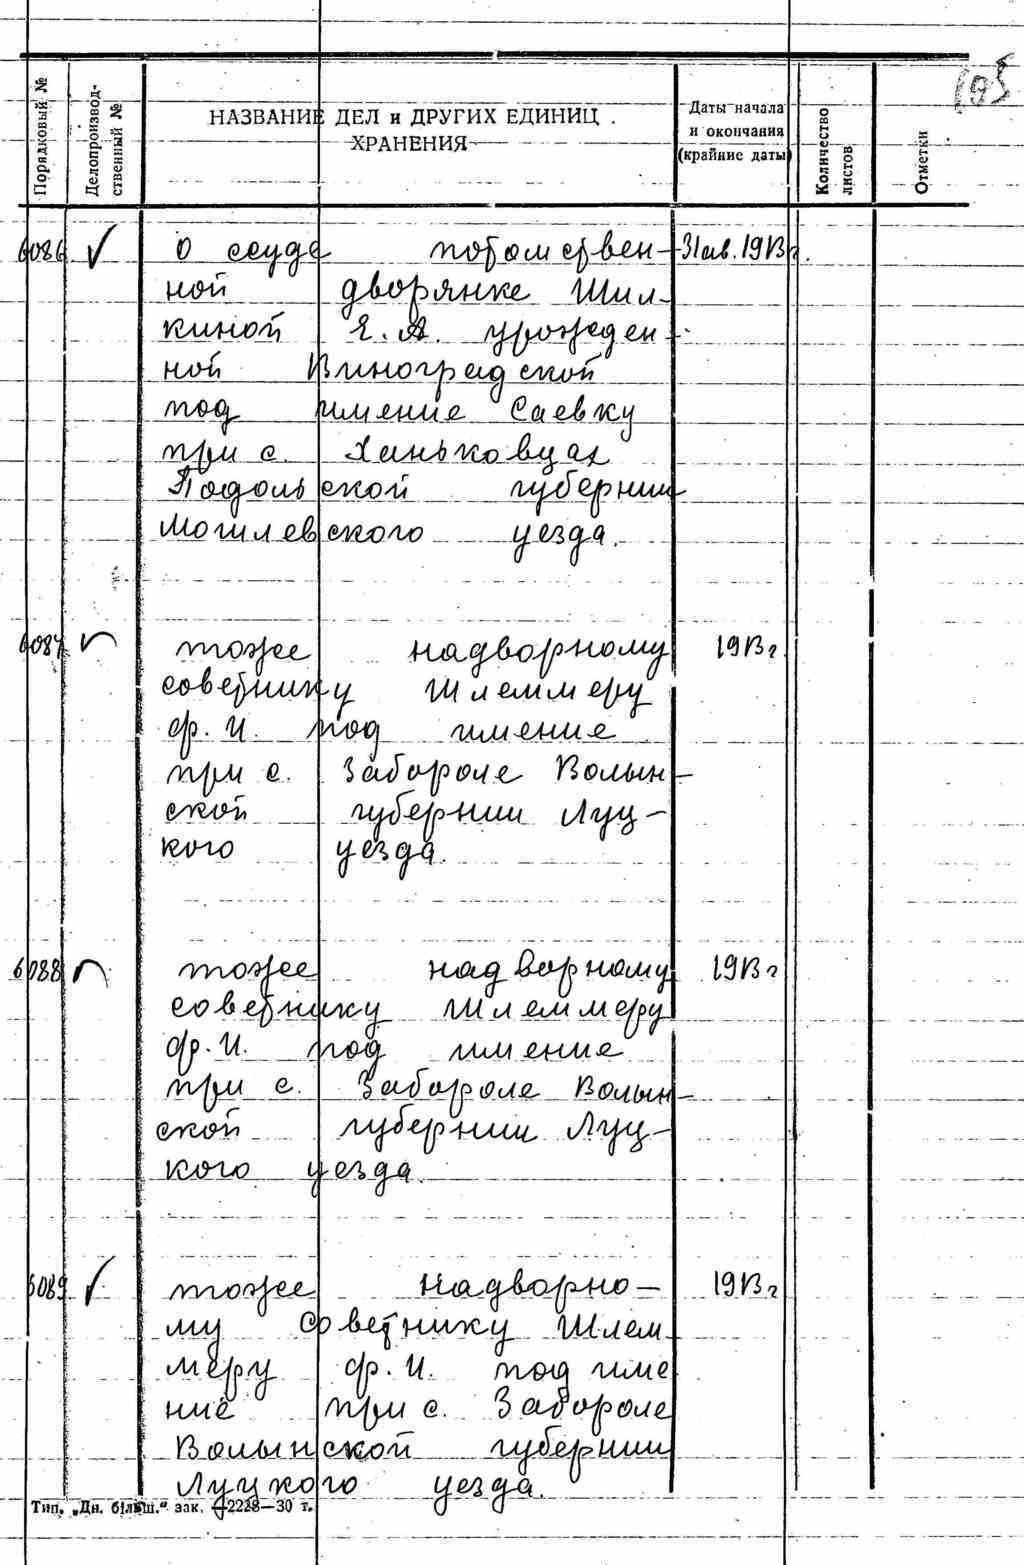 195
Порядковый №
Делопроизвод-
ственный №
НАЗВАНИЕ ДЕЛ и ДРУГИХ ЕДИНИЦ
ХРАНЕНИЯ
Даты начала
и окончания
(крайние даты)
Количество
листов
Отметки
6086 о ссуде потомствен- 31 ав. 1913 г.
ной дворянке Шил-
киной Е. А. урожден-
ной Виноградской
под имение Саевку
при с. Ханьковцах
Подольской губернии
Могилевского уезда.
6087 тоже надворному 1913 г.
советнику Шлеммеру
Ф. И. под имение
при с. Забороле Волын-
ской губернии Луц-
кого уезда.
6088 тоже надворному 1913 г
советнику Шлеммеру
Ф. И. под имение
при с. Забороле Волын-
ской губернии Луц-
кого уезда.
6089 тоже надворно- 1913 г
му советнику Шлем-
меру Ф. И. под име
ние при с. Забороле
Волынской губернии
Луцкого уезда.
Тип. „Дн. більш.“ зак. 2228—30 т.